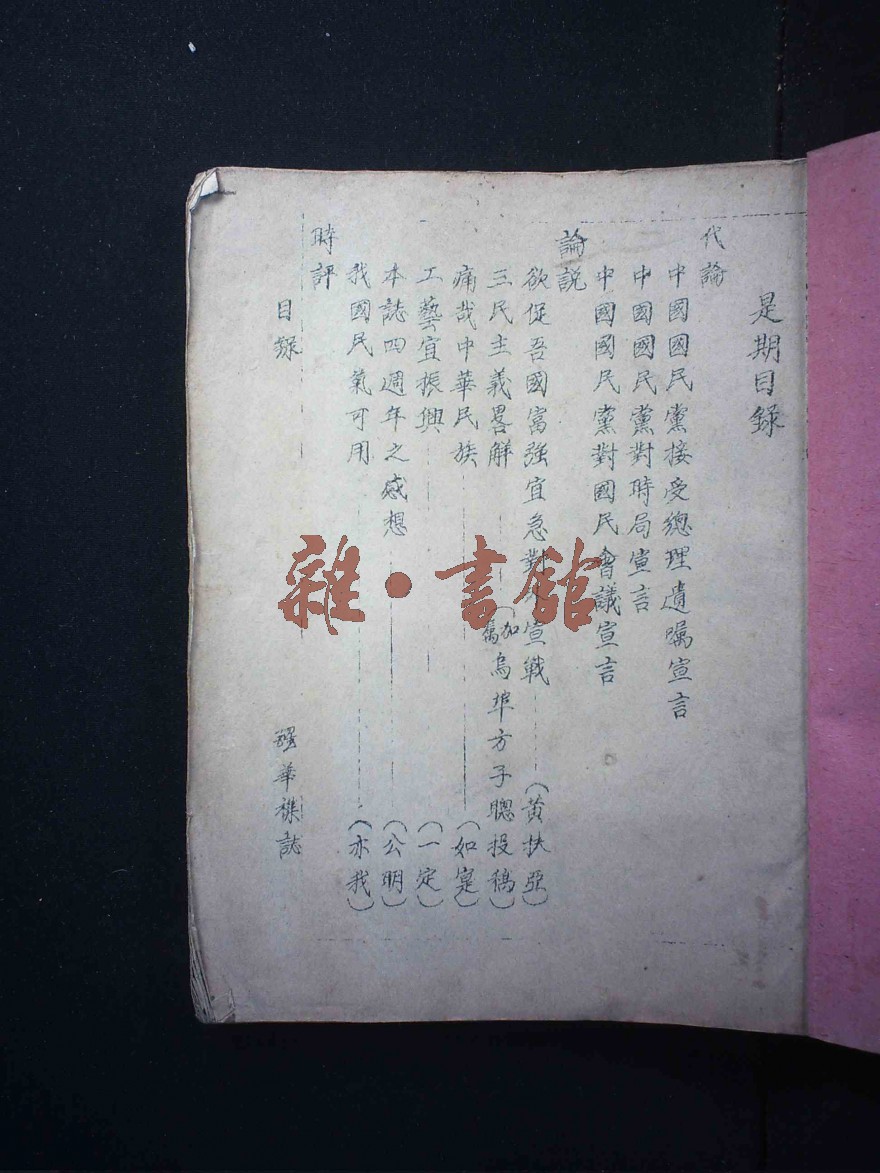 是期目錄
代論
中國國民黨接受總理遺嘱宣言
中國國民黨對時局宣言
中國國民黨對國民會議宣言
論説
欲促吾國富強宜急對 宣戰 (黃扶亞)
三民主義畧解 (加 烏埠方子聰投稿)
痛哉中華民族 (如寔)
工藝宜振興 (一定)
本誌四週年之感想 (公明)
我國民氣可用 (亦我)
時評
目錄
強華襍誌
雜·書館